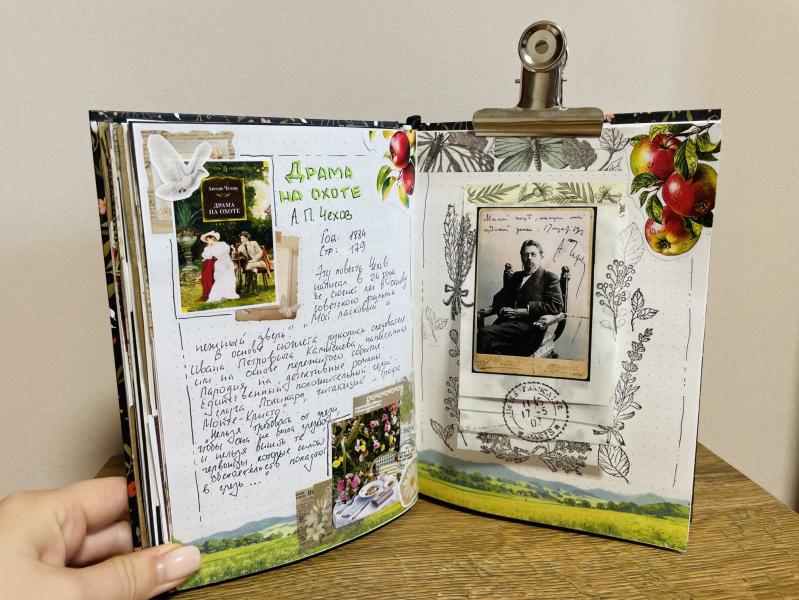 Антон Чехов
ДРАМА
НА ОХОТЕ
ДРАМА
НА ОХОТЕ
А.П. Чехов
Год: 1884
Стр: 179
Эту повесть Чехов
написал в 24 года
Её сюжет лег в основу
советского фильма
"Мой ласковый и
нежный зверь".
В основе сюжета рукопись следователя
Ивана Петровича Камышева, написанная
им на основе пережитого события.
Пародия на детективные романы.
Единственный положительный герой
- слуга Поликарп, читающий "Графа
Монте-Кристо"
"Нельзя требовать от грязи,
чтобы она не была грязью,
и нельзя винить те
червонцы, которые силою
обстоятельств попадают
в грязь..."
17-5
07